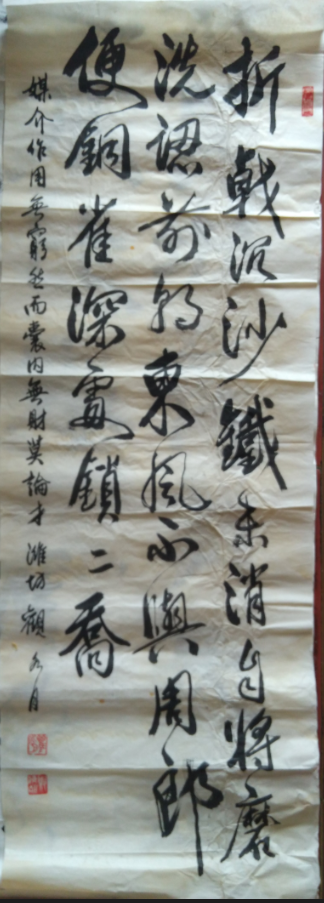 折戟沉沙鐵未消自將磨
洗認前朝東風不與周郎
便銅雀深處鎖二喬
媒介作用無窮然而囊內無財莫論才 濰坊 觀 月